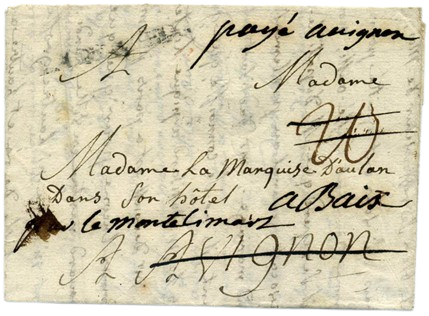 payé avignon
A
Madame
20
Madame La Marquise D'aulan
Dans Son hôtel a Baix
par le montelimart
A Avignon